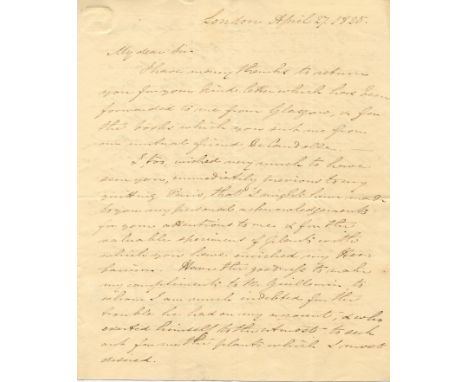 London April 27. 1825.
My dear Sir.
I have many thanks to return
you for your kind letter which has been
forwarded to me from Glasgow, & for
the books which you sent me from
our mutual friend
I too wished very much to have
seen you, immediately previous to my
quitting Paris, that I might have made
to you my personal acknowledgements
for your attentions to me & for the
valuable specimens of plants with
which you have enriched my Her-
barium. Have the goodness to make
my compliments to Mr. Guillemin, to
whom I am much indebted for the
trouble he had on my account, & who
exerted himself to the utmost to seek
out for me the plants which I most
desired.